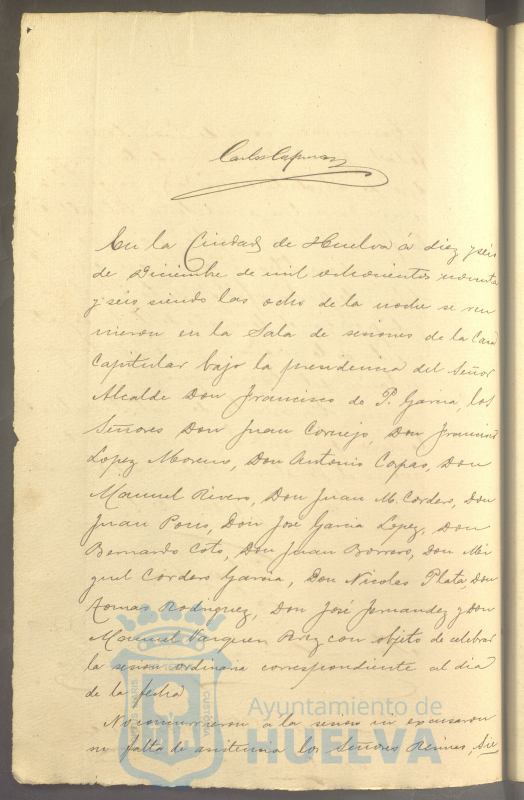 Carlos
En la Ciudad de Huelva á diez y seis
de Diciembre de mil ochocientos noventa
y seis, siendo las ocho de la noche se reu
nieron en la Sala de sesiones de la Casa
Capitular bajo la presidencia del Señor
Alcalde Don Francisco de P. Garcia, los
Señores Don Juan Cornejo, Don Francisco
Lopez Moreno, Don Antonio Corpas, Don
Manuel Rivero, Don Juan M. Cordero, Don
Juan Pons, Don José Garcia Lopez, Don
Bernardo Coto, Don Juan Borrero, Don Mi
guel Cordero Garcia, Don Nicolas Plata, Don
Tomas Rodriguez, Don José Fernandez y Don
Manuel Vazquez Perez con objeto de celebrar
la sesion ordinaria correspondiente al dia
de la fecha
No concurrieron á la sesion ni excusaron
su falta de asistencia los Señores
Ayuntamiento de
HUELVA